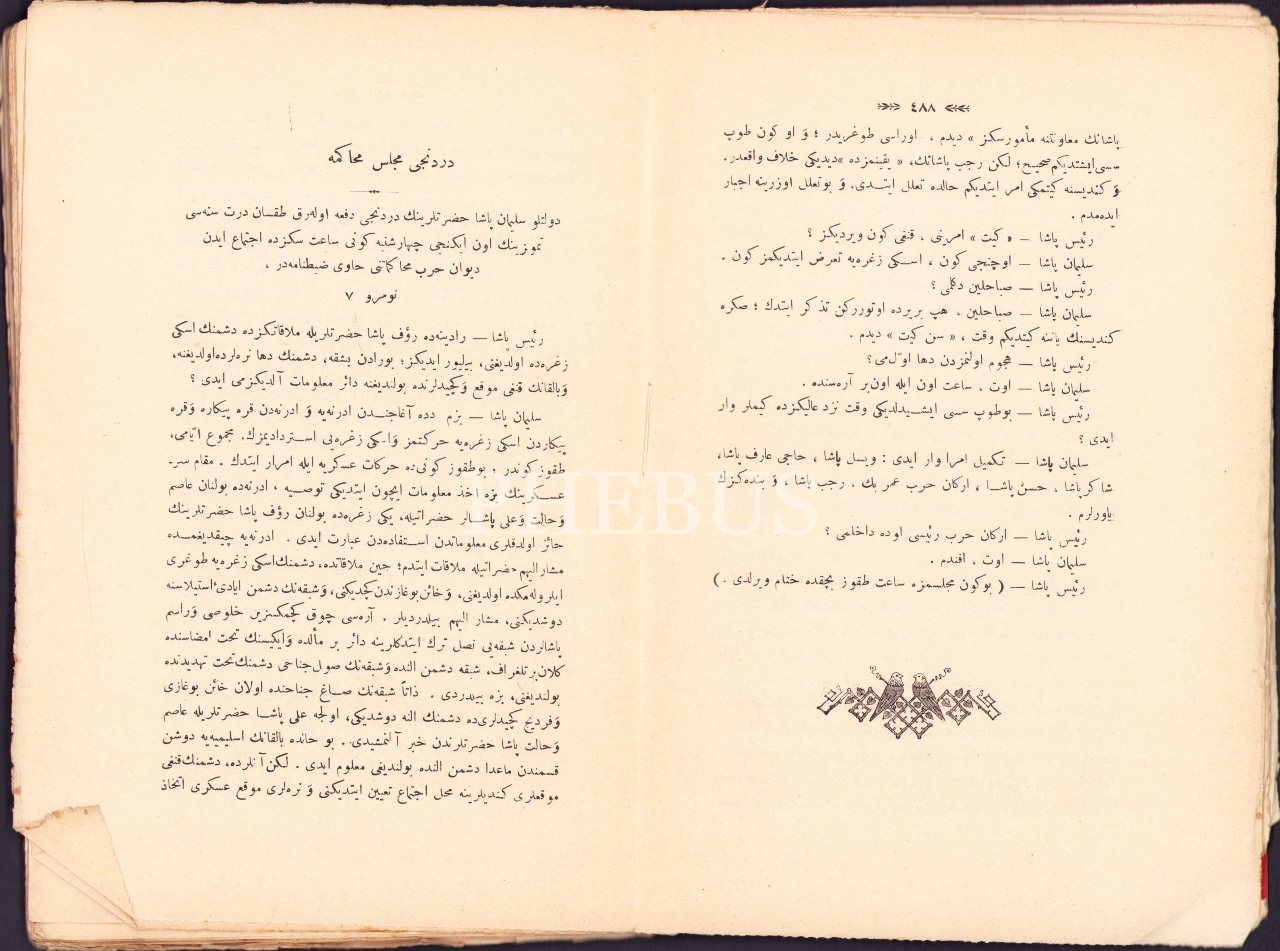 ٤٨٨
پاشانك معاونتنه مأمورسكز » ديدم ، اوراسى طوغريدر ؛ وَ او كون طوپ
سسى ايشتديكم صحيح ؛ لكن رجب پاشانك، « يقينمزده »ديديكى خلاف واقعدر.
وَ كنديسنه كيتمكى امر ايتديكم حالده تعلل ايتــدى. وَ بوتعلل اوزرينه اجبار
ايده‌مدم .
رئيس پاشا — « كيت » امرينى ، قنغى كون ويرديكز ؟
سليمان پاشا — اوچنجى كون ، اسـكى زغره‌يه تعرض ايتديكمز كون .
رئيس پاشا — صباحلين دكلمى ؟
سليمان پاشا — صباحلين ، هپ بريرده اوتوررکن تذكر ايتدك ؛ صكره
كنديسنك ياننه كيتديكم وقت ، « سن كيت » ديدم .
رئيس پاشا — هجوم اولنمزدن دها اوّل‌مى؟
سليمان پاشا — اوت ، ساعت اون ايله اون‌بر آره‌سنده .
رئيس پاشا — بوطوپ سسى ايشــيدلديكى وقت نزد عاليكزده كيملر وار
ايدى ؟
سليمان پاشا — تكميل امرا وار ايدى : ويسل پاشا ، حاجى عارف پاشا،
شاكر پاشا ، حسن پاشـا ، اركان حرب عمر بك ، رجب پاشا ، وَ بنده‌كزك
ياورلرم .
رئيس پاشا — اركان حرب رئيسى اوده داخلمى ؟
سليمان پاشا — اوت ، افندم .
رئيس پاشا — ( بوكون مجلسمزه ساعت طقوز بچقده ختام ويرلدى . )
دردنجى مجلس محاكمه
دولتلو سليمان پاشا حضرتلرينك دردنجى دفعه اوله‌رق طقسان درت سنه‌سى
تموزينك اون ايكنجى چهارشنبه كونى ساعت سكزده اجتماع ايدن
ديوان حرب محاكماتنى حاوى ضبطنامه‌در ،
نومرو ٧
رئيس پاشا — رادينه‌ده رؤف پاشا حضرتلريله ملاقاتكزده دشمنك اسكى
زغره‌ده اولديغنى، بيليور ايديكز؛ بورادن بشقه، دشمنك دها نره‌لرده‌اولديغنه،
وَبالقانك قنغى موقع وَكچيدلرنده بولنديغنه دائر معلومات آلديكزمى ايدى ؟
سليمان پاشا — بزم دده آغاجنــدن ادرنه‌يه وَ ادرنه‌دن قره پيكاره وَقره
پيكاردن اسكى زغره‌يه حركتمز وَاسكى زغره‌يى اسـتردادیمزك. مجموع ايّامى،
طقوز كوندر ؛ بوطقوز كونى‌ده حركات عسكريه ايله امرار ايتدك . مقام سر-
عسـكرينك بزه اخذ معلومات ايچون ايتديكى توصـيه ، ادرنه‌ده بولنان عاصم
وَحالت وَعلى پاشـالر حضراتيله، يكى زغره‌ده بولنان رؤف پاشا حضرتلرينك
حائز اولدقلرى معلوماتدن اسـتفاده‌دن عبارت ايدى . ادرنه‌يه چيقديغمــده
مشاراليهم حضراتيله ملاقات ايتدم؛ حين ملاقاتده، دشمنك‌اسكى زغره‌يه طوغرى
ايلروله‌مكده اولديغنى، وَخائن‌بوغازندن‌كچديكنى، وَشبقه‌نك دشمن ايادئ‌استيلاسنه
دوشديكنى، مشار اليهم بيلدرديلر . آره‌سى چوق كچمكسزين خلوصى وَراسم
پاشالردن شبقه‌يى نصل ترك ايتدكلرينه دائر بر مألده وَايكيسنك تحت امضاسنده
كلان‌برتلغراف، شبقه دشمن النده وَشبقه‌نك صول‌جناحى دشمنك‌تحت تهديدنده
بولنديغنى، بزه بيلدردى . ذاتاً شبقه‌نك صـاغ جناحنده اولان خائن بوغازى
وَفرديج كچيدلرى‌ده دشمنك النه دوشديكى، اولجه على پاشـا حضرتلريله عاصم
وَحالت پاشا حضرتلرندن خبر آلنمشيدى . بو حالده بالقانك اسليميه‌يه دوشن
قسمندن ماعدا دشمن النده بولنديغى معلوم ايدى . لكن‌آنلرده، دشمنك‌قنغى
موقعلرى كنديلرينه محل اجتماع تعيين ايتديكنى وَ نره‌لرى موقع عسكرى اتخاذ
PHEBUS